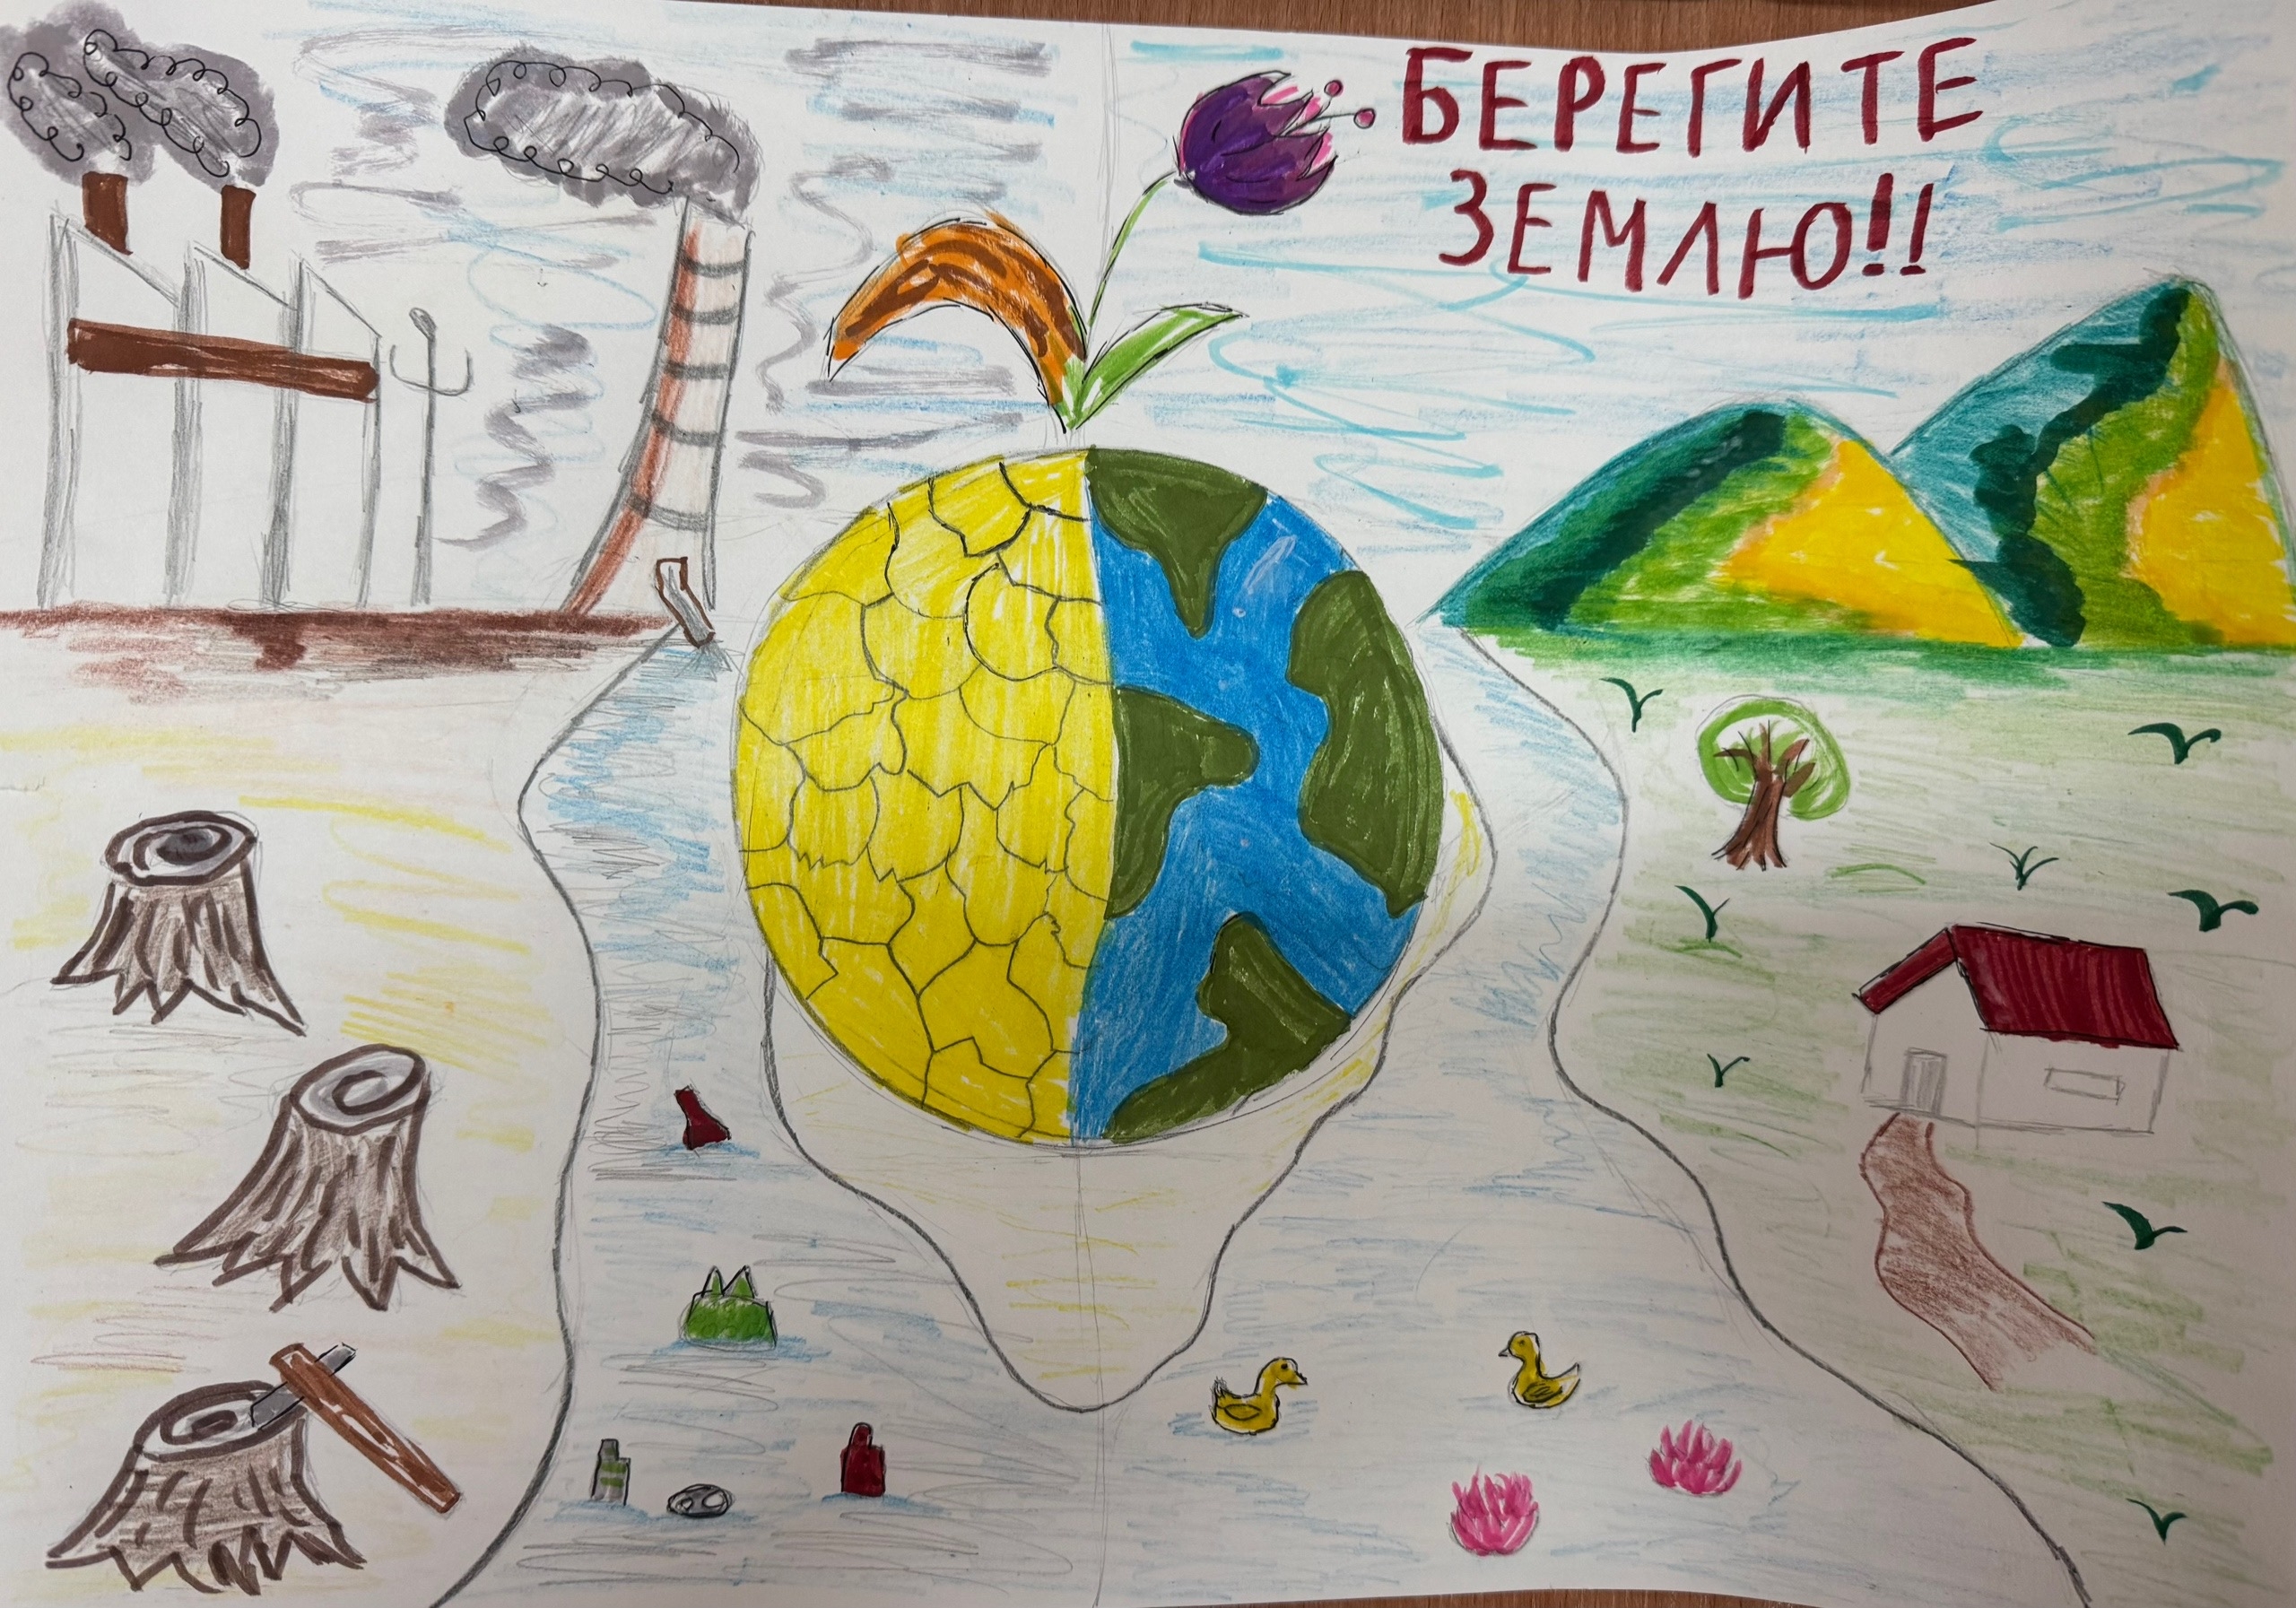 БЕРЕГИТЕ
ЗЕМЛЮ!!